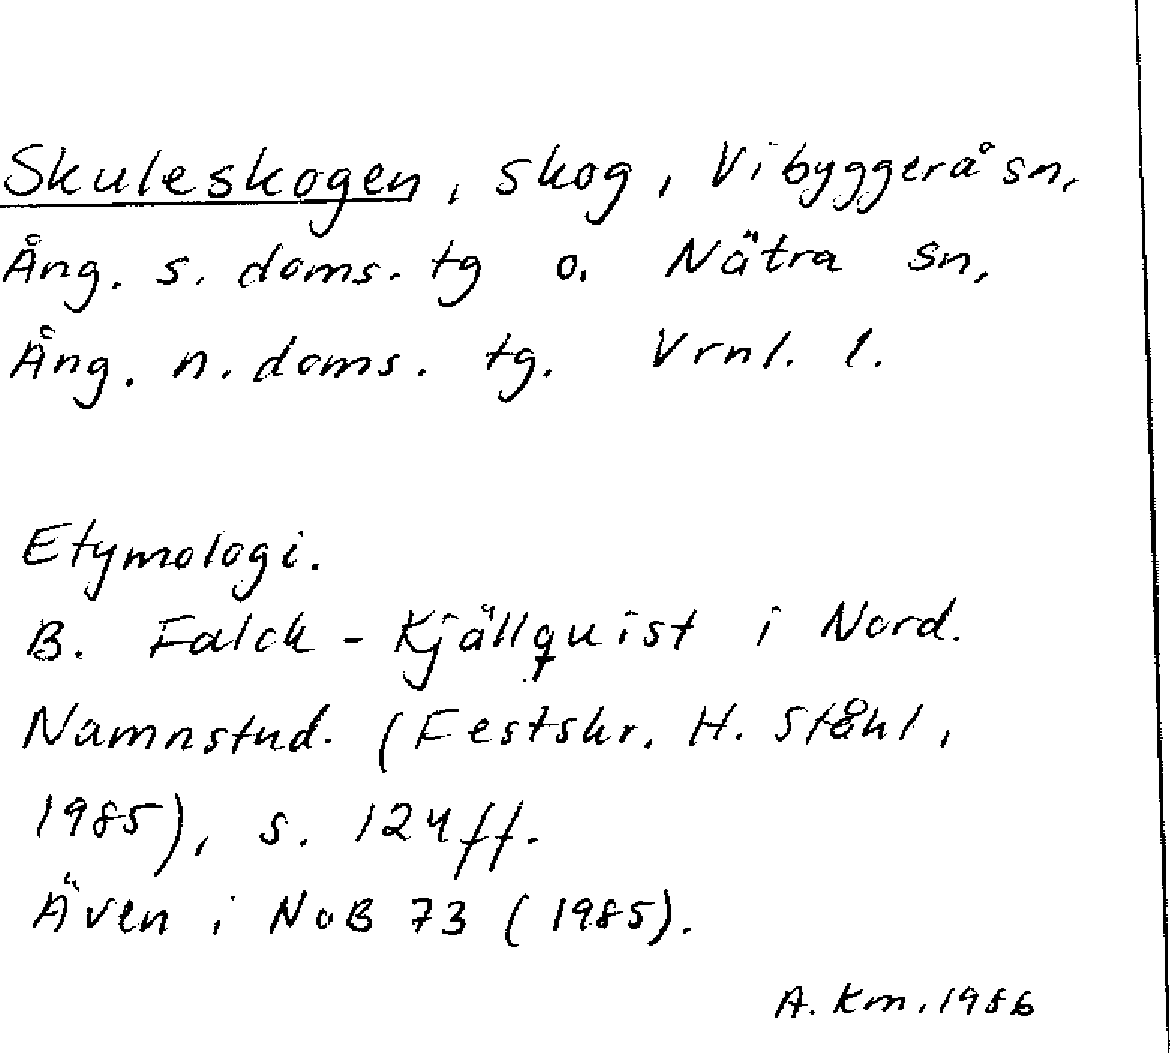 Skuleskogen, skog, Vibyggerå sn,
Ång. s. doms. tg o. Nätra sn,
Ång. n. doms. tg. Vrnl. l.
Etymologi.
B. Falck-Kjällquist i Nord.
Namnstud. (Festskr. H. Ståhl,
1985), s. 124 ff.
Även i NoB 73 (1985).
A. Km. 1986